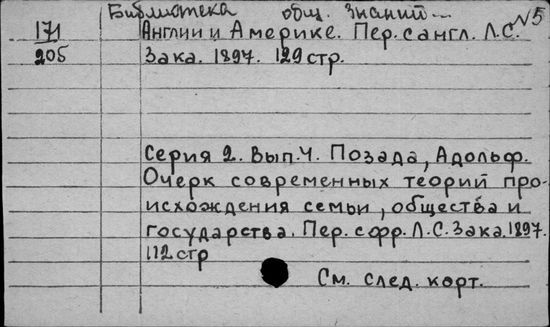 Библиотека общ. знаний... №5
171
205
Англии и Америке. Пер. с англ. Л.С.
Зака. 1897. 129 стр.
Серия 2. Вып. 4. Позада, Адольф.
Очерк современных теорий про-
исхождения семьи, общества и
государства. Пер. с фр. Л.С. Зака. 1897.
112 стр
См. след. карт.